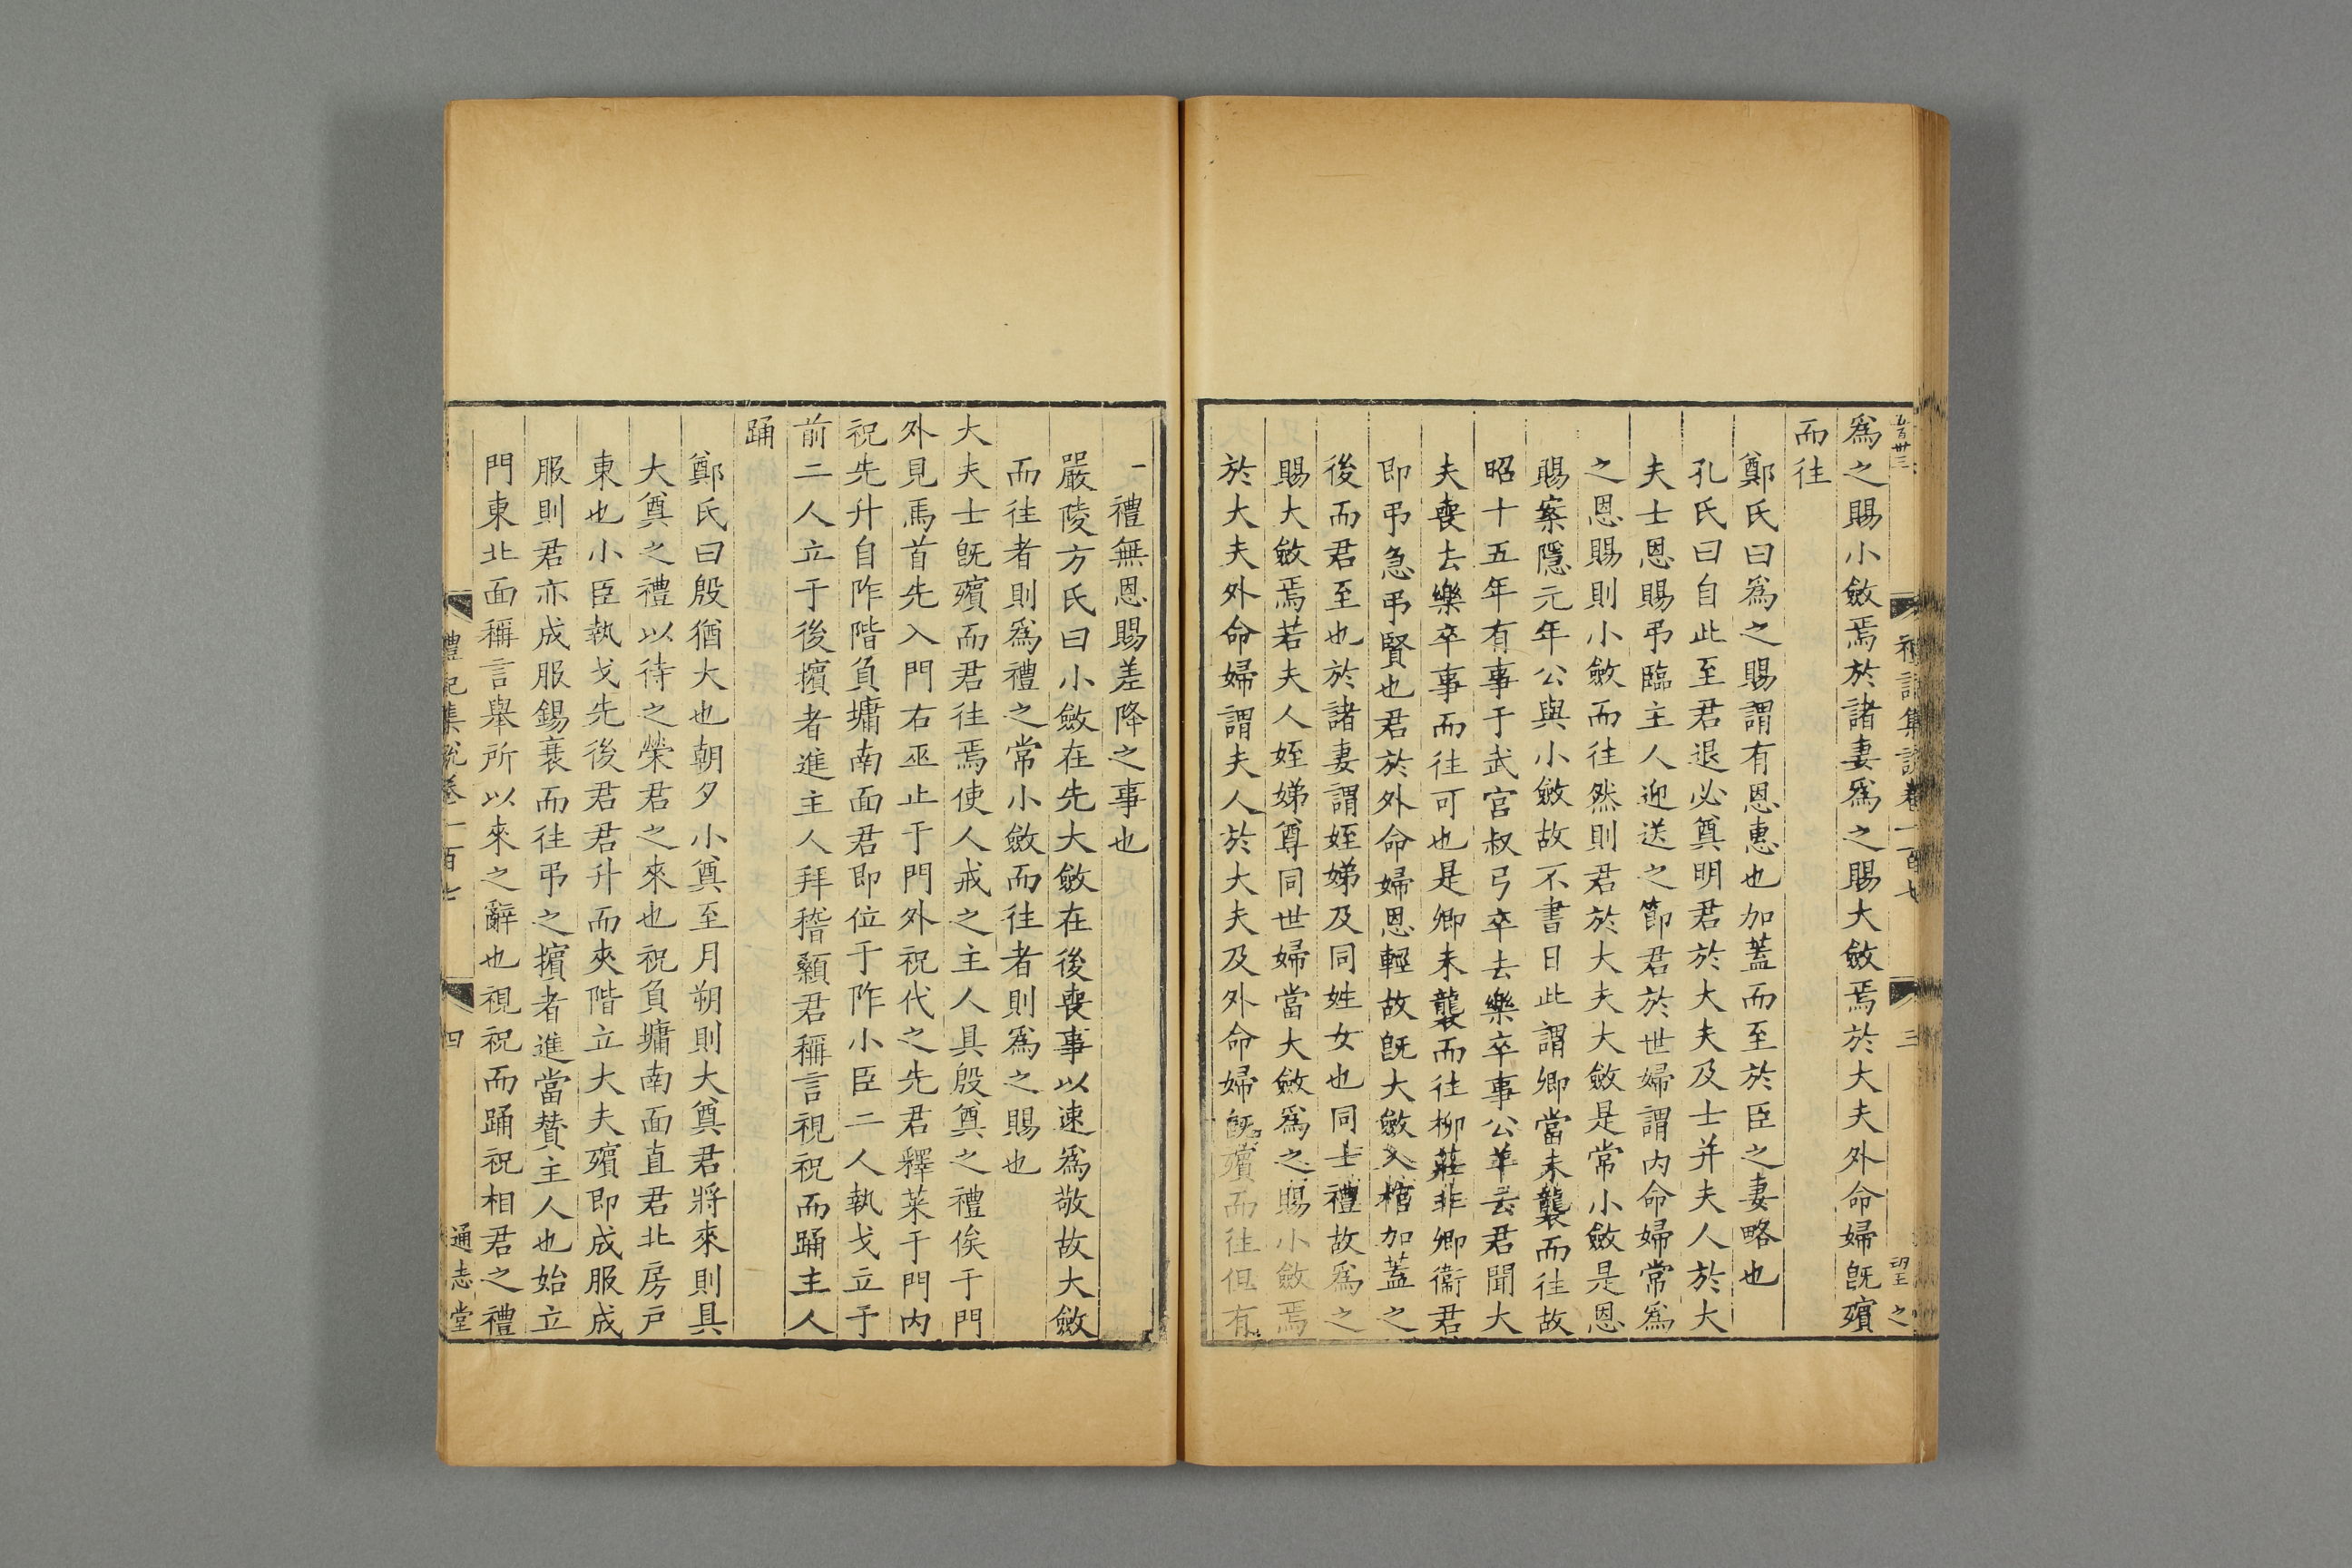 爲之賜小斂焉於諸妻爲之賜大斂焉於大夫外命婦旣殯
而往
鄭氏曰爲之賜謂有恩惠也加蓋而至於臣之妻略也
孔氏曰自此至君退必奠明君於大夫及士并夫人於大
夫士恩賜弔臨主人迎送之節君於世婦謂内命婦常爲
之恩賜則小斂而往然則君於大夫大斂是常小斂是恩
賜案隱元年公與小斂故不書日此謂卿當未襲而往故
昭十五年有事于武宫叔弓卒去樂卒事公羊云君聞大
夫喪去樂卒事而往可也是卿未襲而往柳莊非卿衞君
即弔急弔賢也君於外命婦恩輕故旣大斂入棺加蓋之
後而君至也於諸妻謂姪娣及同姓女也同士禮故爲之
賜大斂焉若夫人姪娣尊同世婦當大斂爲之賜小斂焉
於大夫外命婦謂夫人於大夫及外命婦旣殯而往但有
一禮無恩賜差降之事也
嚴陵方氏曰小斂在先大斂在後喪事以速爲敬故大斂
而往者則爲禮之常小斂而往者則爲之賜也
大夫士旣殯而君往焉使人戒之主人具殷奠之禮俟于門
外見馬首先入門右巫止于門外祝代之先君釋菜于門内
祝先升自阼階負墉南面君即位于阼小臣二人執戈立于
前二人立于後擯者進主人拜稽顙君稱言視祝而踊主人
踊
鄭氏曰殷猶大也朝夕小奠至月朔則大奠君將來則具
大奠之禮以待之榮君之來也祝負墉南面直君北房戸
東也小臣執戈先後君君升而夾階立大夫殯即成服成
服則君亦成服錫衰而往弔之擯者進當贊主人也始立
門東北面稱言舉所以來之辭也視祝而踊祝相君之禮
禮記集説卷一百七
四
通志堂